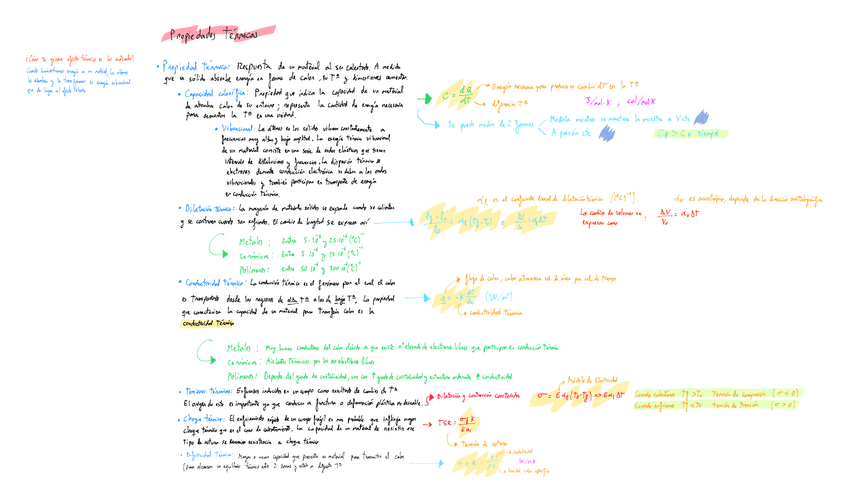 Propiedades térmicas
¿Cómo se genera efecto térmico en los materiales?
Cuando suministramos energía a un material, los átomos
la absorben y la transforman en energía vibracional
• Propiedad térmica: Respuesta de un material al ser calentado. A medida
que un sólido absorbe energía en forma de calor, su Tª y dimensiones aumentan.
• Capacidad calorífica: Propiedad que indica la capacidad de un material
de absorber calor de su entorno; representa la cantidad de energía necesaria
para aumentar la Tª en una unidad.
C = dQ/dT
→ Energía necesaria para producir un cambio dT en la Tª
→ diferencia Tª
J/mol·K , cal/mol·K
→ Se puede medir de 2 formas
Medirla mientras se mantiene la muestra a V cte
A presión cte
Cp > Cv siempre
• Vibracional: Los átomos en los sólidos vibran constantemente a
frecuencias muy altas y baja amplitud. La energía térmica vibracional
de un material consiste en una serie de ondas elásticas que tienen
intervalo de distribuciones y frecuencias. La dispersión térmica de
electrones durante conducción electrónica se deben a las ondas
vibracionales y también participan en transporte de energía
en conducción térmica.
• Dilatación térmica: La mayoría de materiales sólidos se expande cuando se calientan
y se contraen cuando son enfriados. El cambio de longitud se expresa así
αl es el coeficiente lineal de dilatación térmica (°C)⁻¹
Los cambios de volumen se
expresan como
ΔV/V₀ = αv ΔT
αv es anisótropo, depende de la dirección cristalográfica
Metales: Entre 5·10⁻⁶ y 25·10⁻⁶ (°C)⁻¹
Cerámicos: Entre 5·10⁻⁶ y 15·10⁻⁶ (°C)⁻¹
Polímeros: Entre 50·10⁻⁶ y 300·10⁻⁶ (°C)⁻¹
• Conductividad térmica: La conducción térmica es el fenómeno por el cual el calor
es transportado desde las regiones de alta Tª a las de baja Tª. La propiedad
que caracteriza la capacidad de un material para transferir calor es la
conductividad térmica
→ flujo de calor, calor atraviesa ud de área por ud de tiempo
q = -k dT/dx (W/m²)
→ conductividad térmica
Metales: Muy buenos conductores del calor debido a que existe nº elevado de electrones libres que participan en conducción térmica
Cerámicos: Aislantes térmicos por no electrones libres
Polímeros: Depende del grado de cristalinidad, uno con ↑ grado de cristalinidad y estructura ordenada ↑ conductividad
• Tensiones térmicas: Esfuerzos inducidos en un cuerpo como resultado de cambios de Tª
El origen de esto es importante ya que conducen a fractura o deformación plástica no deseable.
→ Dilatación y contracción controladas
→ Módulo de Elasticidad
σ = E αl (T₀-Tf) = E αl ΔT
Cuando calentamos Tf > T₀ Tensión de compresión (σ < 0)
Cuando enfriamos Tf < T₀ tensión de tracción (σ > 0)
• Choque térmico: El enfriamiento rápido de un cuerpo es más probable que inflija mayor
choque térmico que en el caso de calentamiento. La capacidad de un material de resistir ese
tipo de rotura se denomina resistencia a choque térmico
→ TSR = σf k / E αl
→ Tensión de rotura
• Difusividad Térmica: Mayor o menor capacidad que presenta un material para transmitir el calor
→ conductividad